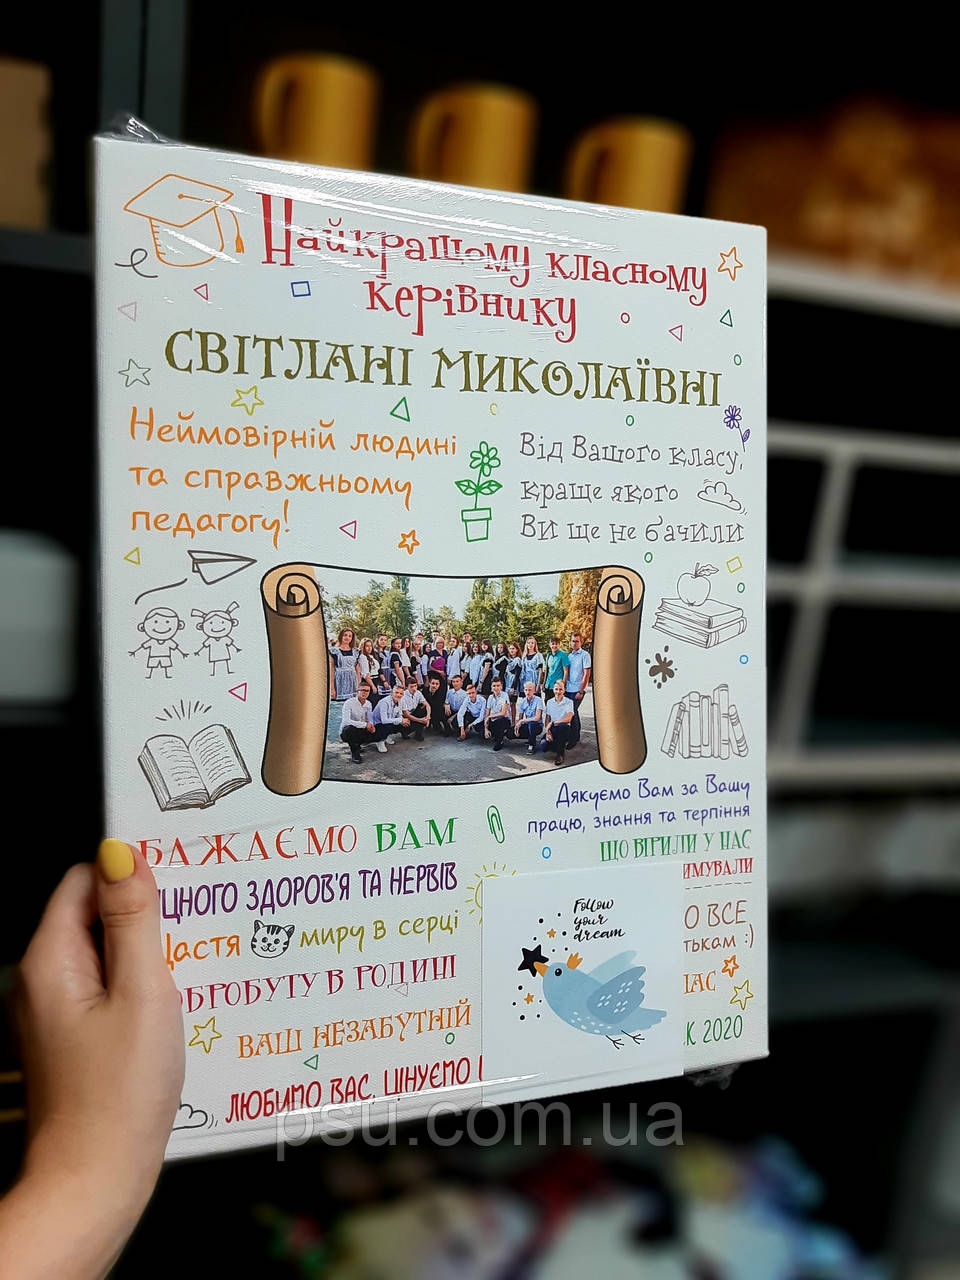 Найкращому класному
керівнику
СВІТЛАНІ МИКОЛАЇВНІ
Неймовірній людині
та справжньому
педагогу!
Від Вашого класу,
краще якого
Ви ще не бачили
Дякуємо Вам за Вашу
працю, знання та терпіння
ЩО ВІРИЛИ У НАС
ИМУВАЛИ
БАЖАЄМО ВАМ
ЦНОГО ЗДОРОВ'Я ТА НЕРВІВ
Щастя миру в серці
ОБРОБУТУ В РОДИНІ
ВАШ НЕЗАБУТНІЙ
ЛЮБИМО ВАС, ЦІНУЄМО
Follow
your
dream
О ВСЕ
тькам :)
НАС
К 2020
psu.com.ua